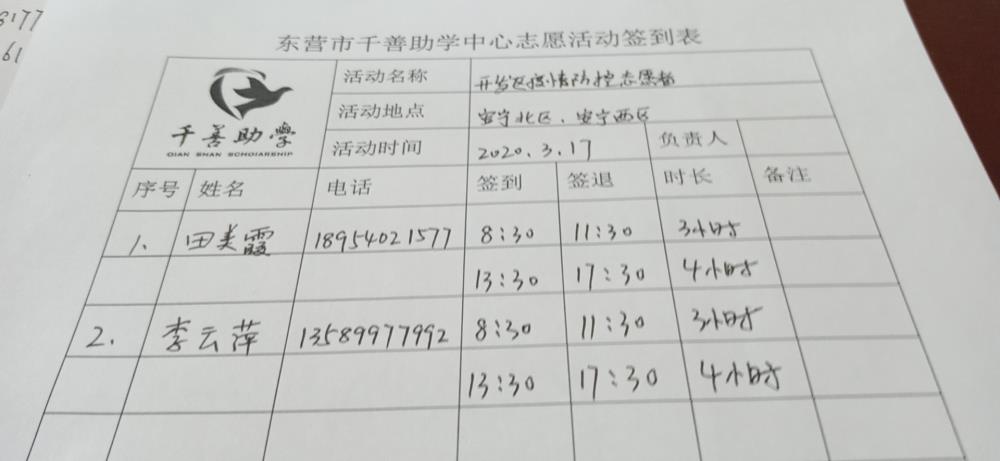 8177
61
东营市千善助学中心志愿活动签到表
千善助学
QIAN SHAN SCHOLARSHIP
活动名称 开发区疫情防控志愿者
活动地点 安宁北区、安宁西区
活动时间 2020.3.17 负责人
序号 姓名 电话 签到 签退 时长 备注
1、 田美霞 18954021577 8:30 11:30 3小时
13:30 17:30 4小时
2. 李云萍 13589977992 8:30 11:30 3小时
13:30 17:30 4小时